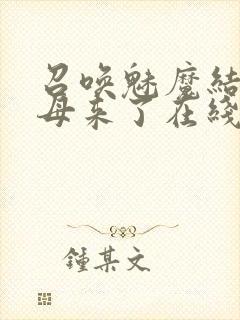 召喚魅魔結
母来了在綫
鍾某文